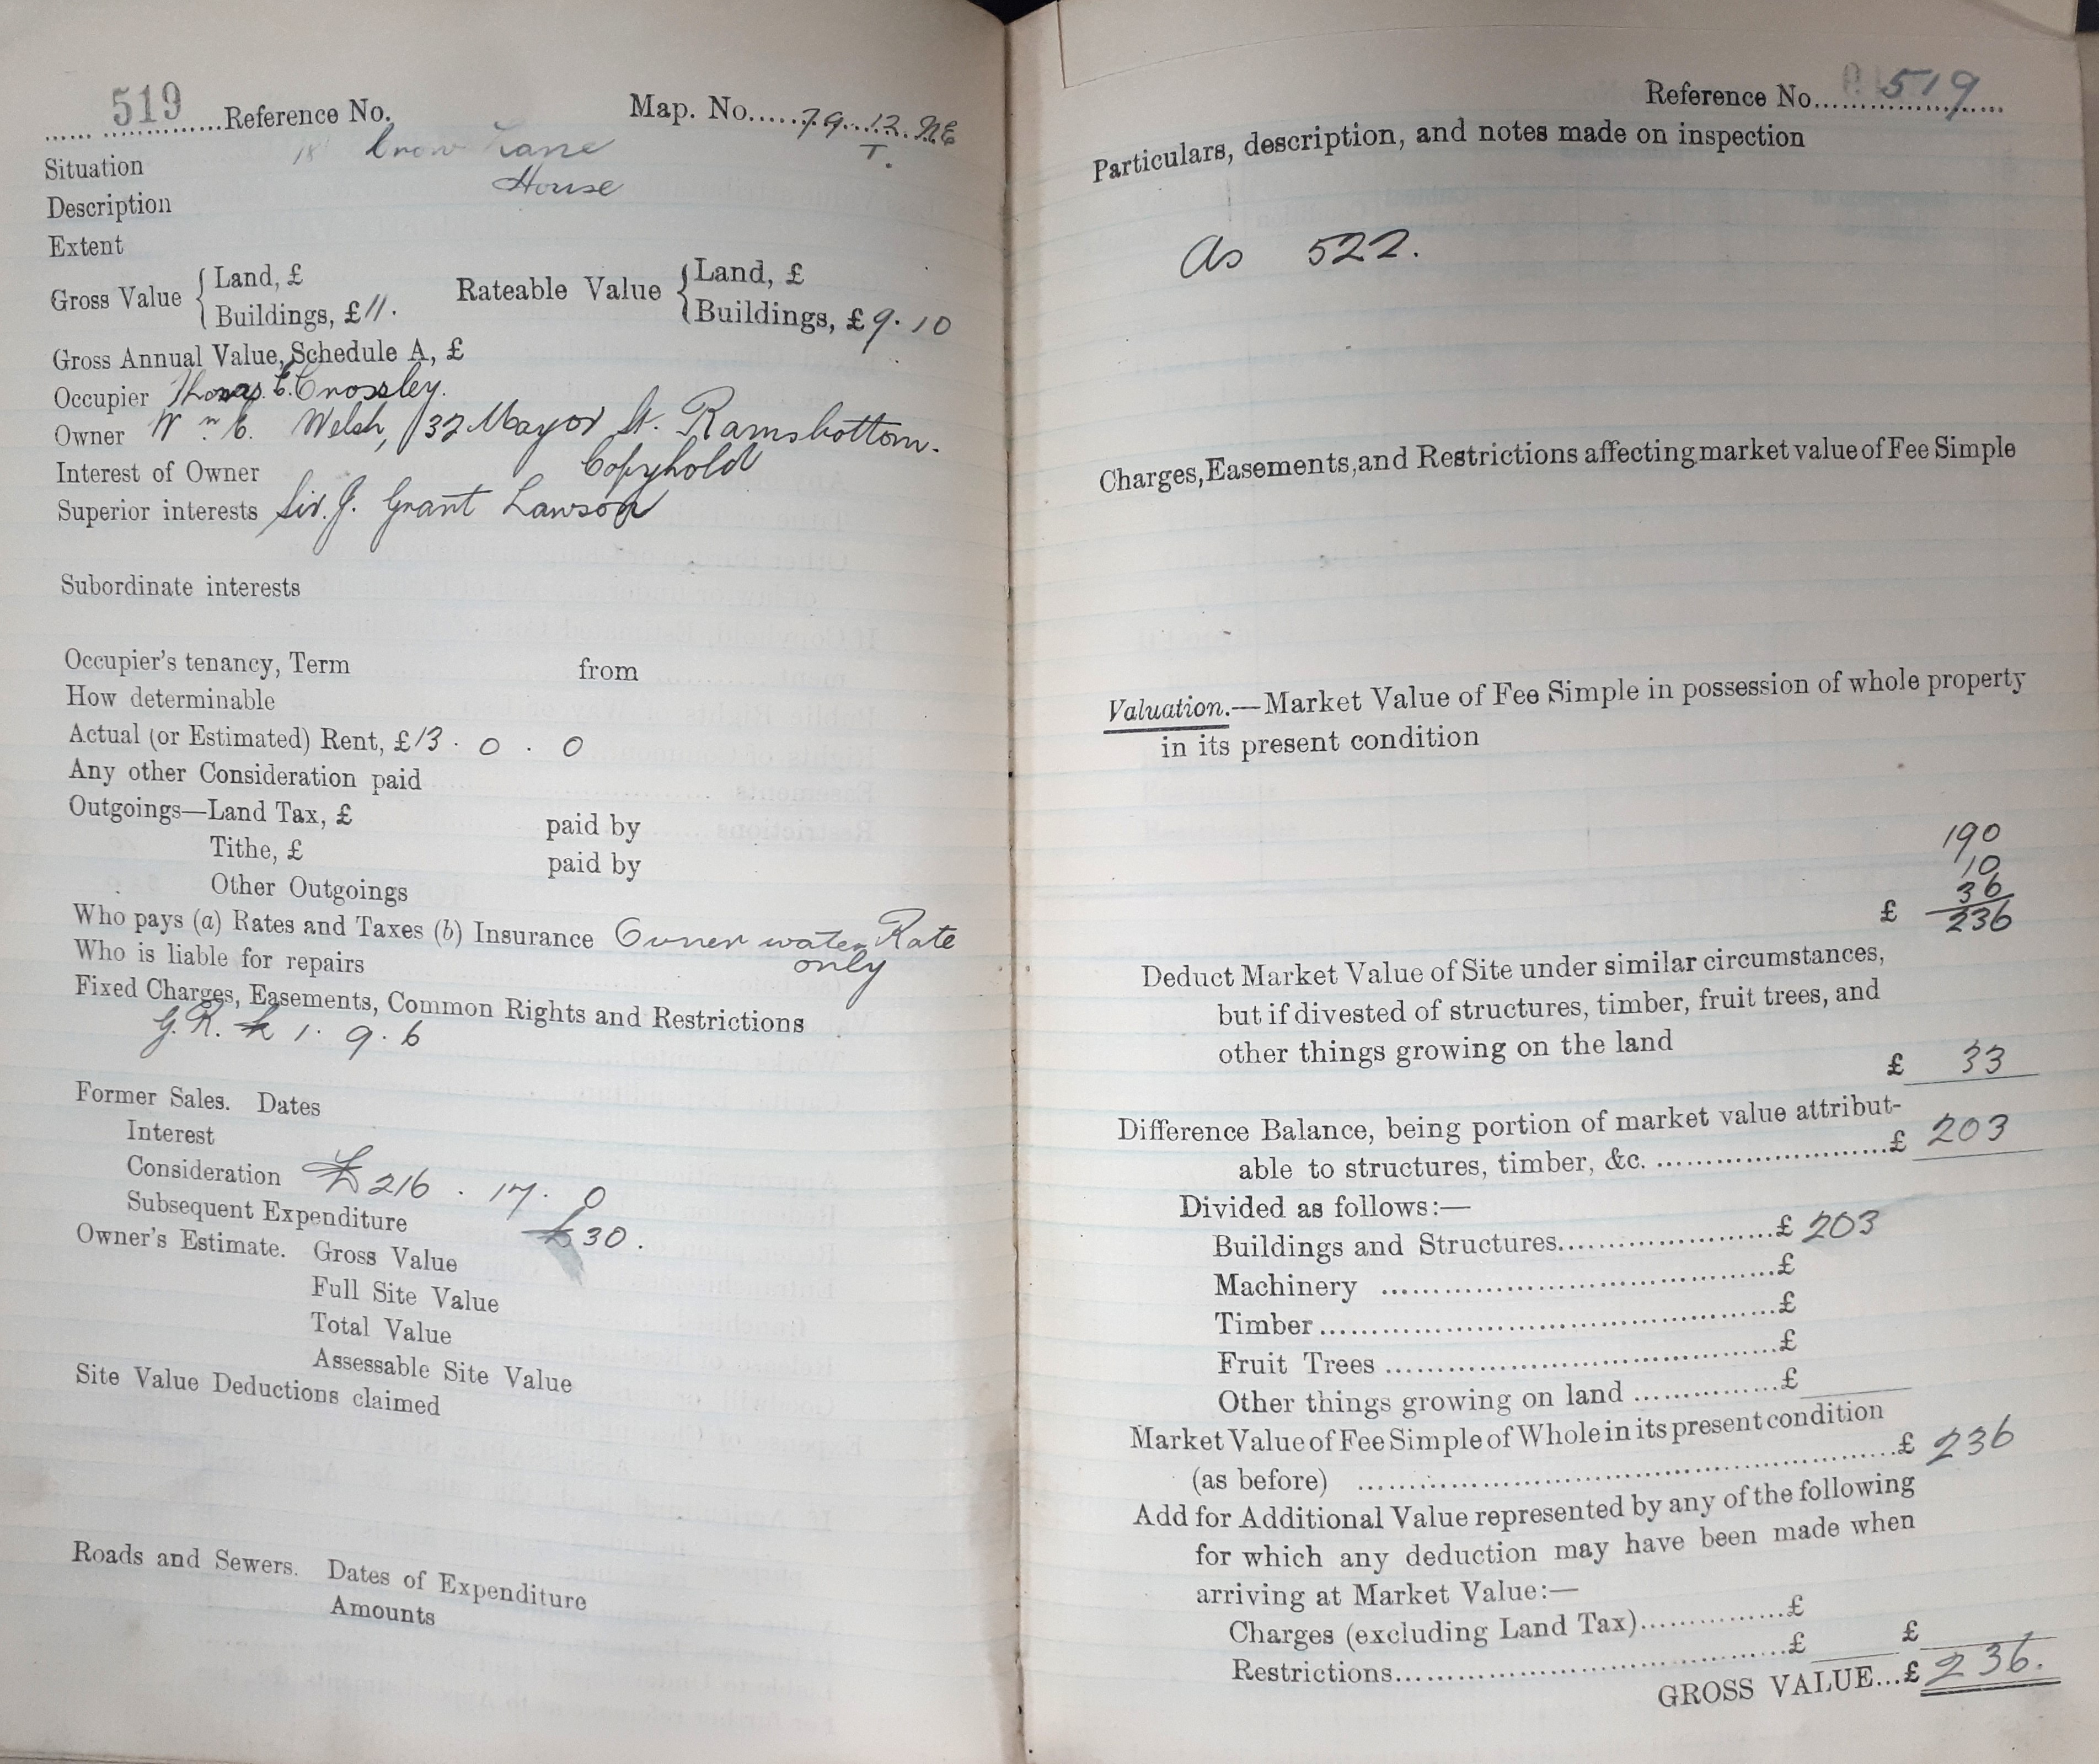 519 Reference No. Map. No. 79. 12. NE
T.
Situation 18 Crow Lane
Description House
Extent
Gross Value { Land, £ Rateable Value { Land, £
Buildings, £11. Buildings, £9.10
Gross Annual Value, Schedule A, £
Occupier Thomas E. Crossley.
Owner Wm C. Welsh, 32 Mayor St. Ramsbottom.
Interest of Owner Copyhold
Superior interests Sir. J. Grant Lawson
Subordinate interests
Occupier's tenancy, Term from
How determinable
Actual (or Estimated) Rent, £13 . 0 . 0
Any other Consideration paid
Outgoings—Land Tax, £ paid by
Tithe, £ paid by
Other Outgoings
Who pays (a) Rates and Taxes (b) Insurance Owner water Rate
only
Who is liable for repairs
Fixed Charges, Easements, Common Rights and Restrictions
G.R. £1. 9. 6
Former Sales. Dates
Interest
Consideration £216 . 17. 0
Subsequent Expenditure £30.
Owner's Estimate. Gross Value
Full Site Value
Total Value
Assessable Site Value
Site Value Deductions claimed
Roads and Sewers. Dates of Expenditure
Amounts
Reference No. 519
Particulars, description, and notes made on inspection
As 522.
Charges, Easements, and Restrictions affecting market value of Fee Simple
Valuation.—Market Value of Fee Simple in possession of whole property
in its present condition
190
10
36
£ 236
Deduct Market Value of Site under similar circumstances,
but if divested of structures, timber, fruit trees, and
other things growing on the land
£ 33
Difference Balance, being portion of market value attribut-
able to structures, timber, &c. £ 203
Divided as follows:—
Buildings and Structures £ 203
Machinery £
Timber £
Fruit Trees £
Other things growing on land £
Market Value of Fee Simple of Whole in its present condition
(as before) £ 236
Add for Additional Value represented by any of the following
for which any deduction may have been made when
arriving at Market Value:—
Charges (excluding Land Tax) £
Restrictions £ £
GROSS VALUE...£ 236.